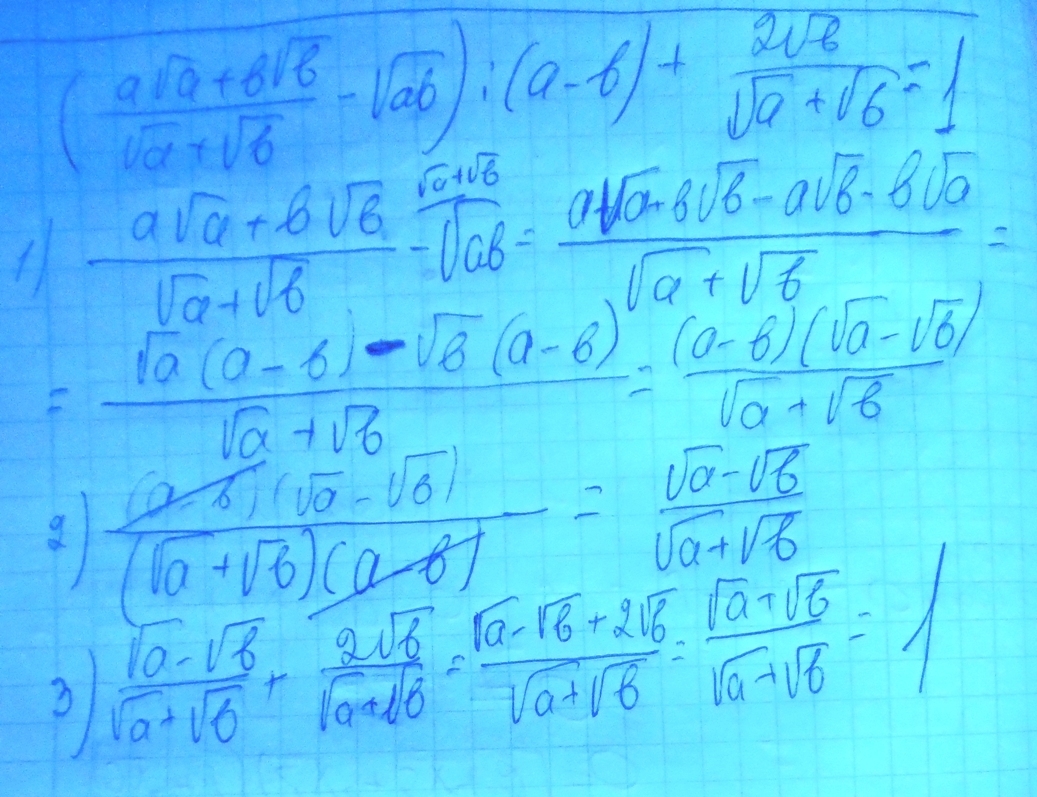 ((a√a+b√b)/(√a+√b) - √ab) : (a-b) + 2√b/(√a+√b) = 1
1) (a√a+b√b)/(√a+√b) - √ab^(√a+√b) = (a√a+b√b-a√b-b√a)/(√a+√b) =
= (√a(a-b)-√b(a-b))/(√a+√b) = ((a-b)(√a-√b))/(√a+√b)
2) ((a-b)(√a-√b))/((√a+√b)(a-b)) = (√a-√b)/(√a+√b)
3) (√a-√b)/(√a+√b) + 2√b/(√a+√b) = (√a-√b+2√b)/(√a+√b) = (√a+√b)/(√a+√b) = 1